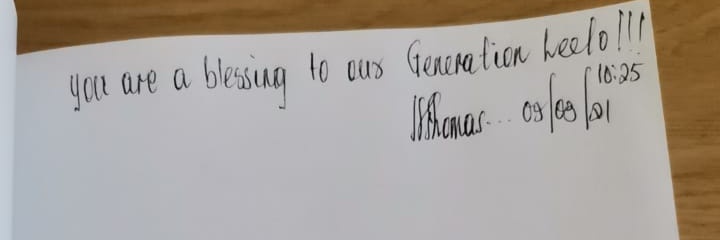 you are a blessing to our Generation Leelo!!!
10:25
Thomas... 09/09/21